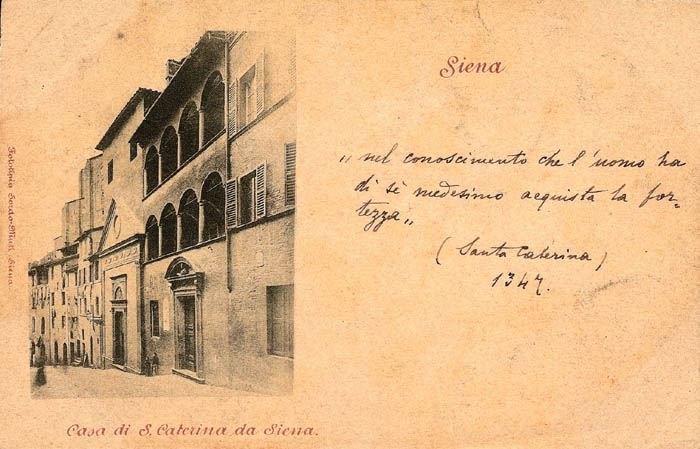 Siena
„ nel conoscimento che l'uomo ha
di sè medesimo acquista la for-
tezza „
(Santa Caterina)
1347.
Fototipia Sordo-Muti, Siena
Casa di S. Caterina da Siena.